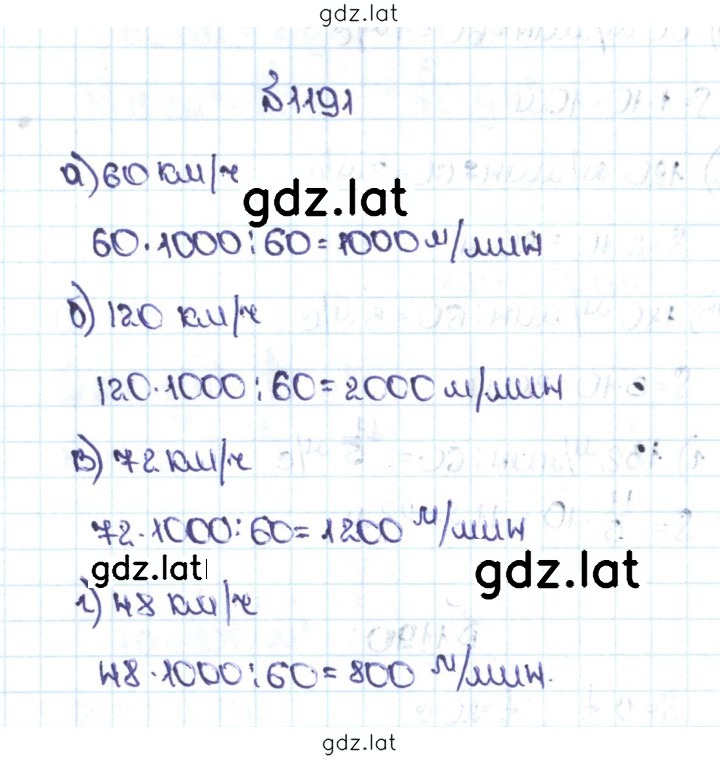 gdz.lat
№1191
а) 60 км/ч
gdz.lat
60·1000:60=1000 м/мин
б) 120 км/ч
120·1000:60=2000 м/мин
в) 72 км/ч
72·1000:60=1200 м/мин
gdz.lat
gdz.lat
г) 48 км/ч
48·1000:60=800 м/мин.
gdz.lat